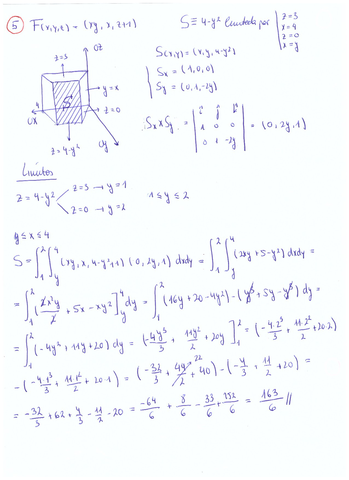 ⑤ F(x,y,z) = (xy, x, z+1)    S ≡ 4-y² limitada por | z=3
x=4
z=0
x=y
OZ
z=3
S(x,y) = (x, y, 4-y²)
y=x
Sx = (1,0,0)
Sy = (0,1,-2y)
S
z=0
4
OX
OY
z=4-y²
Sx x Sy = | i j k
1 0 0
0 1 -2y | = (0, 2y, 1)
Límites
z = 4-y²   z=3 → y=1
z=0 → y=2    1 ≤ y ≤ 2
y ≤ x ≤ 4
S = ∫₁² ∫y⁴ (xy, x, 4-y²+1) (0, 2y, 1) dxdy = ∫₁² ∫y⁴ (2xy + 5 - y²) dxdy =
= ∫₁² (2x²y/2 + 5x - xy²]y⁴ dy = ∫₁² (16y + 20 - 4y²) - (y³ + 5y - y³) dy =
= ∫₁² (-4y² + 11y + 20) dy = (-4y³/3 + 11y²/2 + 20y ]₁² = (-4·2³/3 + 11·2²/2 + 20·2)
-(-4·1³/3 + 11·1²/2 + 20·1) = (-32/3 + 44/2 22 + 40) - (-4/3 + 11/2 + 20) =
= -32/3 + 62 + 4/3 - 11/2 - 20 = -64/6 + 8/6 - 33/6 + 252/6 = 163/6 //